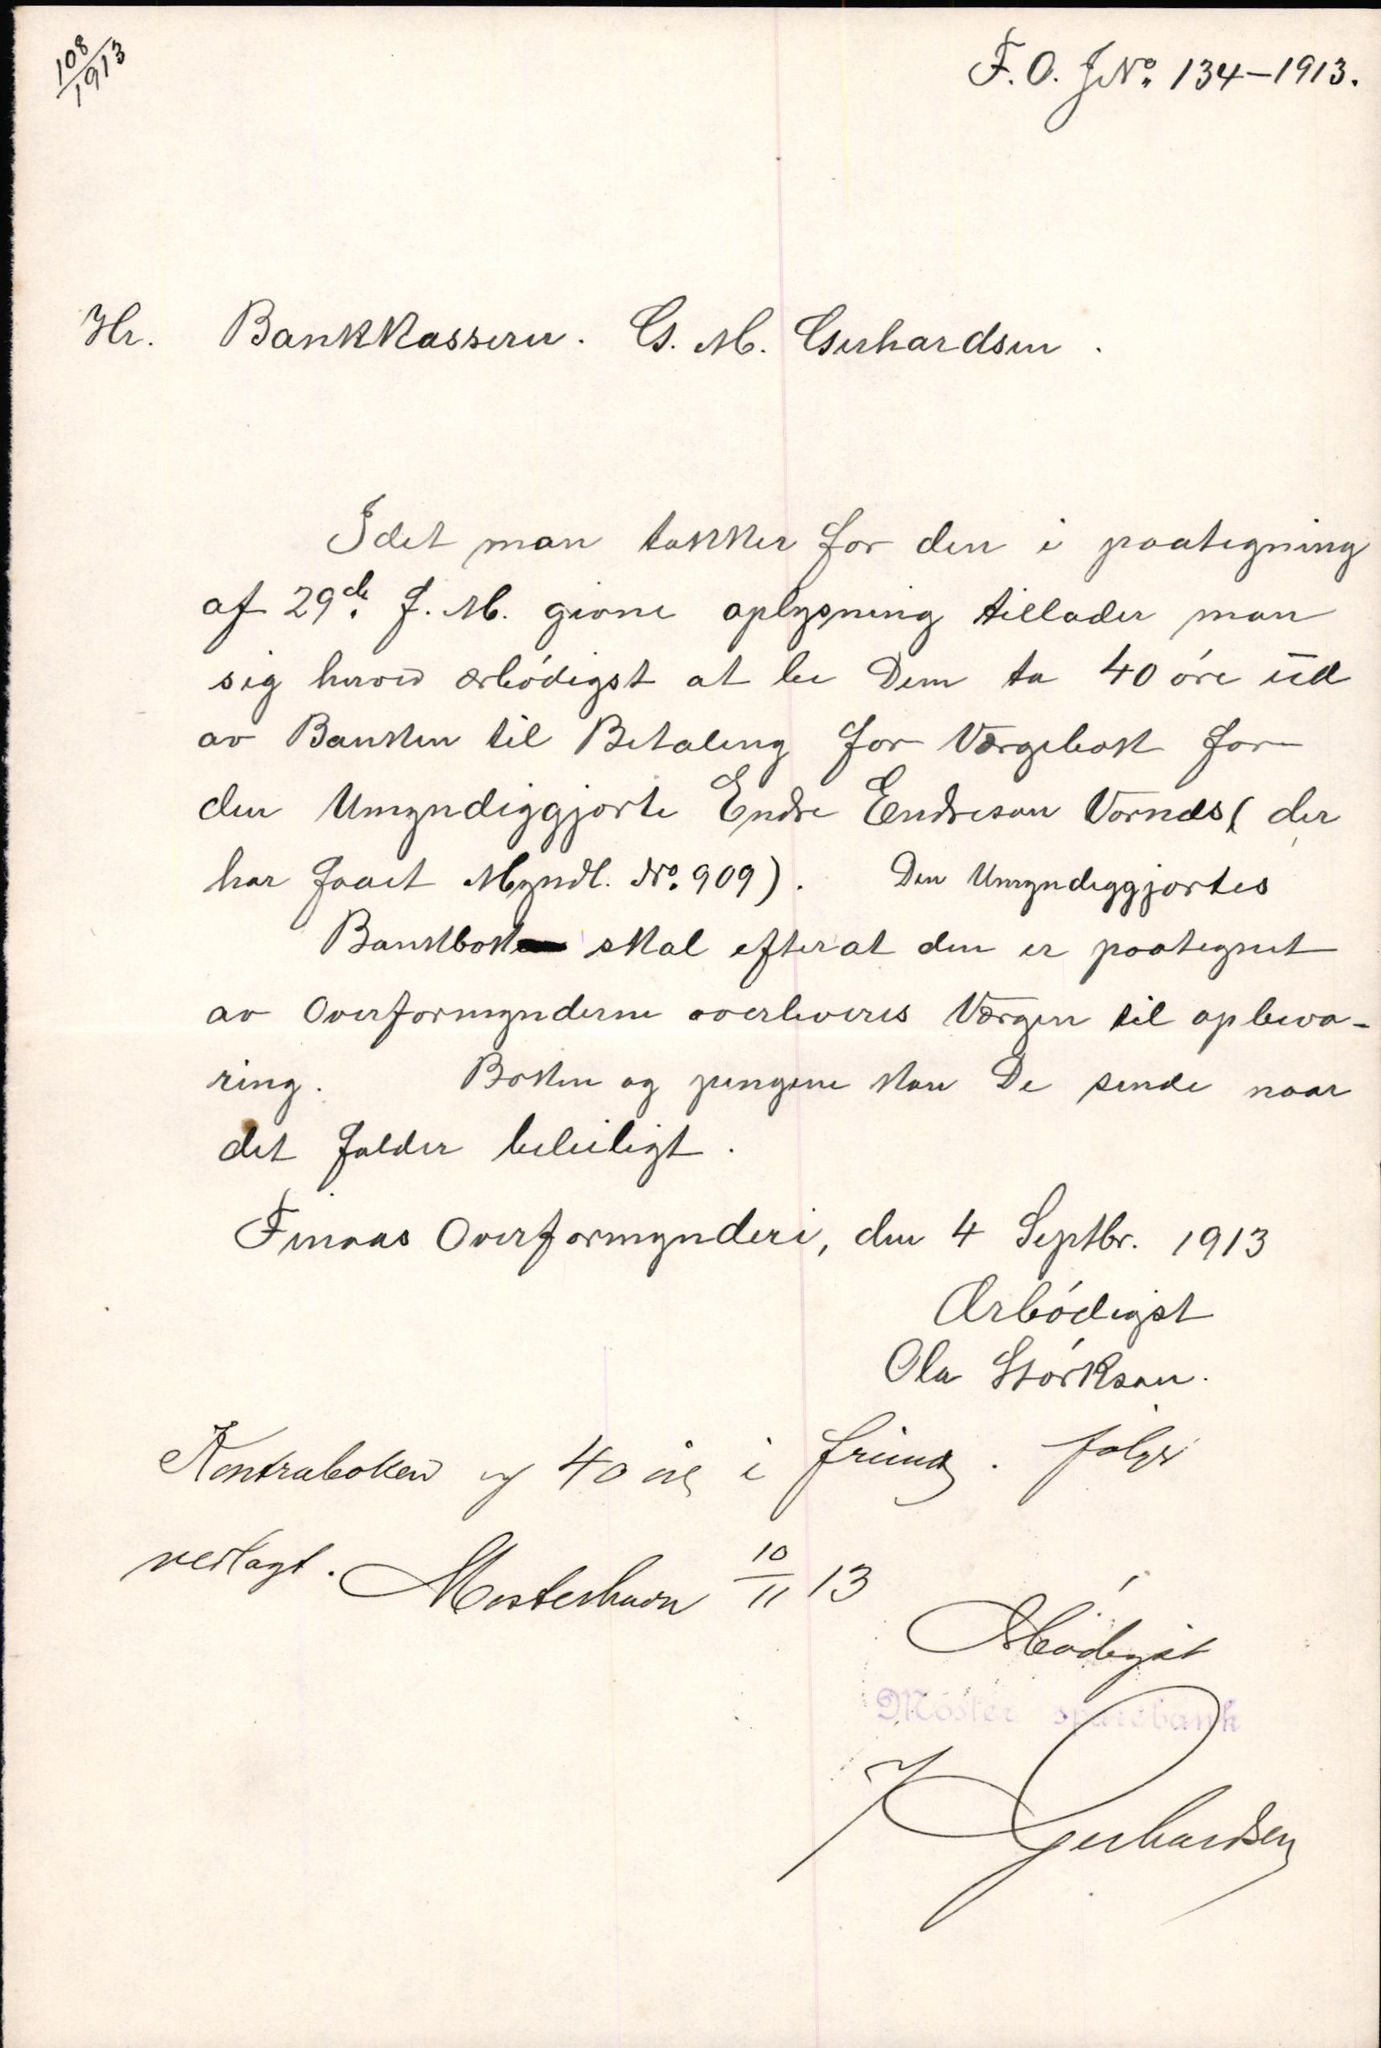 108/1913
F. O. J No. 134-1913.
Hr. Bankkasserer. G. M. Gerhardsen.
Idet man takker for den i paategning
af 29de f. M. givne oplysning tillader man
sig herved ærbödigst at be Dem ta 40 öre ud
av Banken til Betaling for Værgebok for
den Umyndiggjorte Endre Endreson Vornes (der
har faaet Myndl. No. 909). Den Umyndiggjortes
Bankbok skal efterat den er paategnet
av Overformynderne overleveres Værgen til opbeva-
ring. Boken og pengene kan De sende naar
det falder beleiligt.
Finaas Overformynderi, den 4 Septbr. 1913
Ærbödigst
Ola Störkson.
Kontraboken og 40 öre i frimæ. følger
vedlagt. Mosterhavn 10/11 13
Ærbödigst
Moster sparebank
Gerhardsen